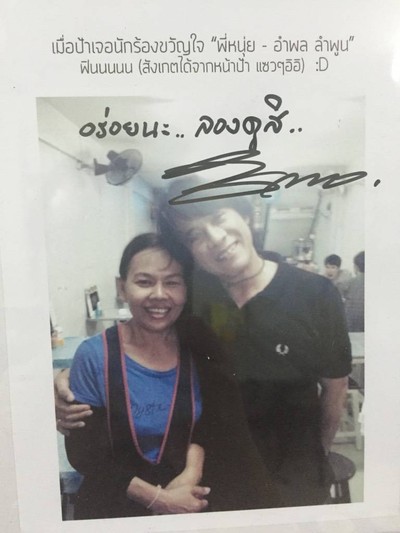 เมื่อป้าเจอนักร้องขวัญใจ "พี่หนุ่ย - อำพล ลำพูน"
ฟินนนนน (สังเกตได้จากหน้าป้า แซวๆอิอิ) :D
อร่อยนะ.. ลองดูสิ..